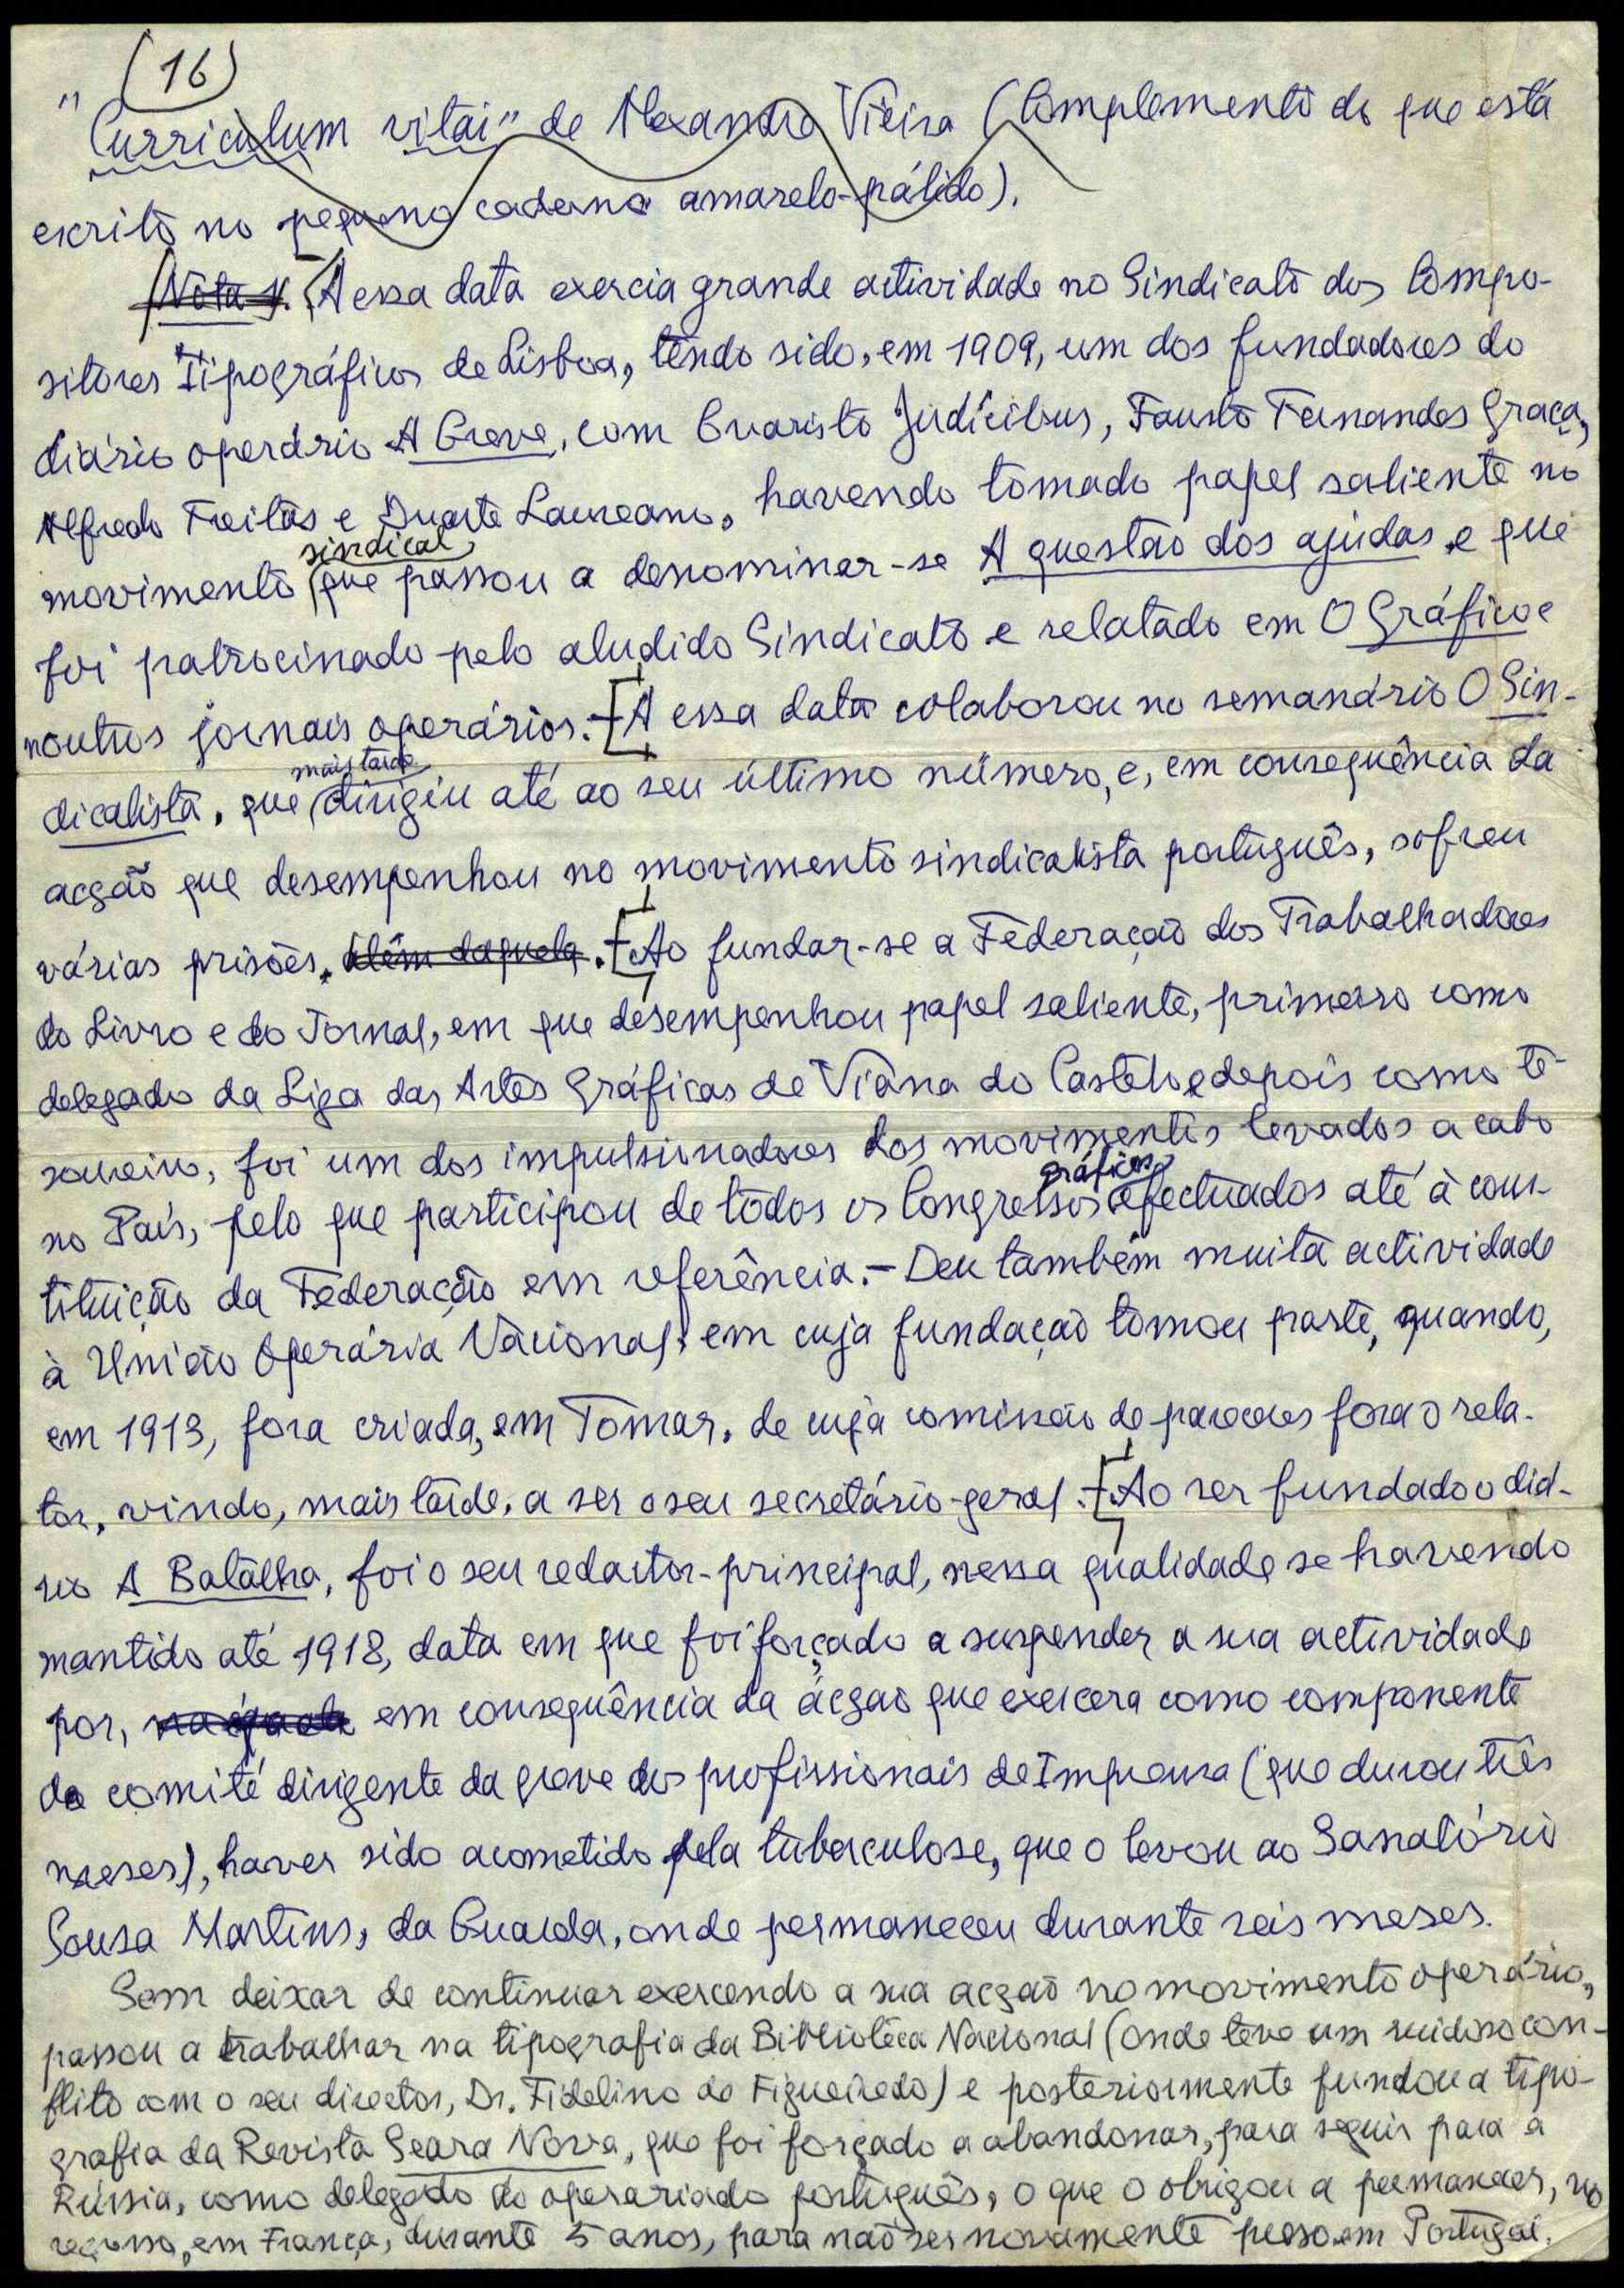 (16)
"Curriculum vitai" de Alexandre Vieira (Complemento do que está
escrito no pequeno caderno amarelo-pálido).
(Nota 1. A essa data exercia grande actividade no Sindicato dos Compo-
sitores Tipográficos de Lisboa, tendo sido, em 1909, um dos fundadores do
diário operário A Greve, com Evaristo Judícibus, Fausto Fernandes Graça,
Alfredo Freitas e Duarte Laureano, havendo tomado papel saliente no
sindical
movimento que passou a denominar-se A questão dos ajudas e que
foi patrocinado pelo aludido Sindicato e relatado em O Gráfico e
noutros jornais operários.-[A essa data colaborou no semanário O Sin-
mais tarde
dicalista, que dirigiu até ao seu último número, e, em consequência da
acção que desempenhou no movimento sindicalista português, sofreu
várias prisões, além daquela.-[Ao fundar-se a Federação dos Trabalhadores
do Livro e do Jornal, em que desempenhou papel saliente, primeiro como
delegado da Liga das Artes Gráficas de Viana do Castelo e depois como te-
soureiro, foi um dos impulsionadores dos movimentos levados a cabo
gráficos
no País, pelo que participou de todos os Congressos efectuados até à cons-
tituição da Federação em referência.- Deu também muita actividade
à União Operária Nacional, em cuja fundação tomou parte, quando,
em 1913, fora criada, em Tomar, de cuja comissão de pareceres fora o rela-
tor, vindo, mais tarde, a ser o seu secretário-geral.-[Ao ser fundado o diá-
rio A Batalha, foi o seu redactor-principal, nessa qualidade se havendo
mantido até 1918, data em que foi forçado a suspender a sua actividade
por, em consequência da acção que exercera como componente
do comité dirigente da greve dos profissionais de Imprensa (que durou três
meses), haver sido acometido pela tuberculose, que o levou ao Sanatório
Sousa Martins, da Guarda, onde permaneceu durante seis meses.
Sem deixar de continuar exercendo a sua acção no movimento operário,
passou a trabalhar na tipografia da Biblioteca Nacional (onde teve um ruidoso con-
flito com o seu director, Dr. Fidelino de Figueiredo) e posteriormente fundou a tipo-
grafia da Revista Seara Nova, que foi forçado a abandonar, para seguir para a
Rússia, como delegado do operariado português, o que o obrigou a permanecer, no
regresso, em França, durante 5 anos, para não ser novamente preso em Portugal.